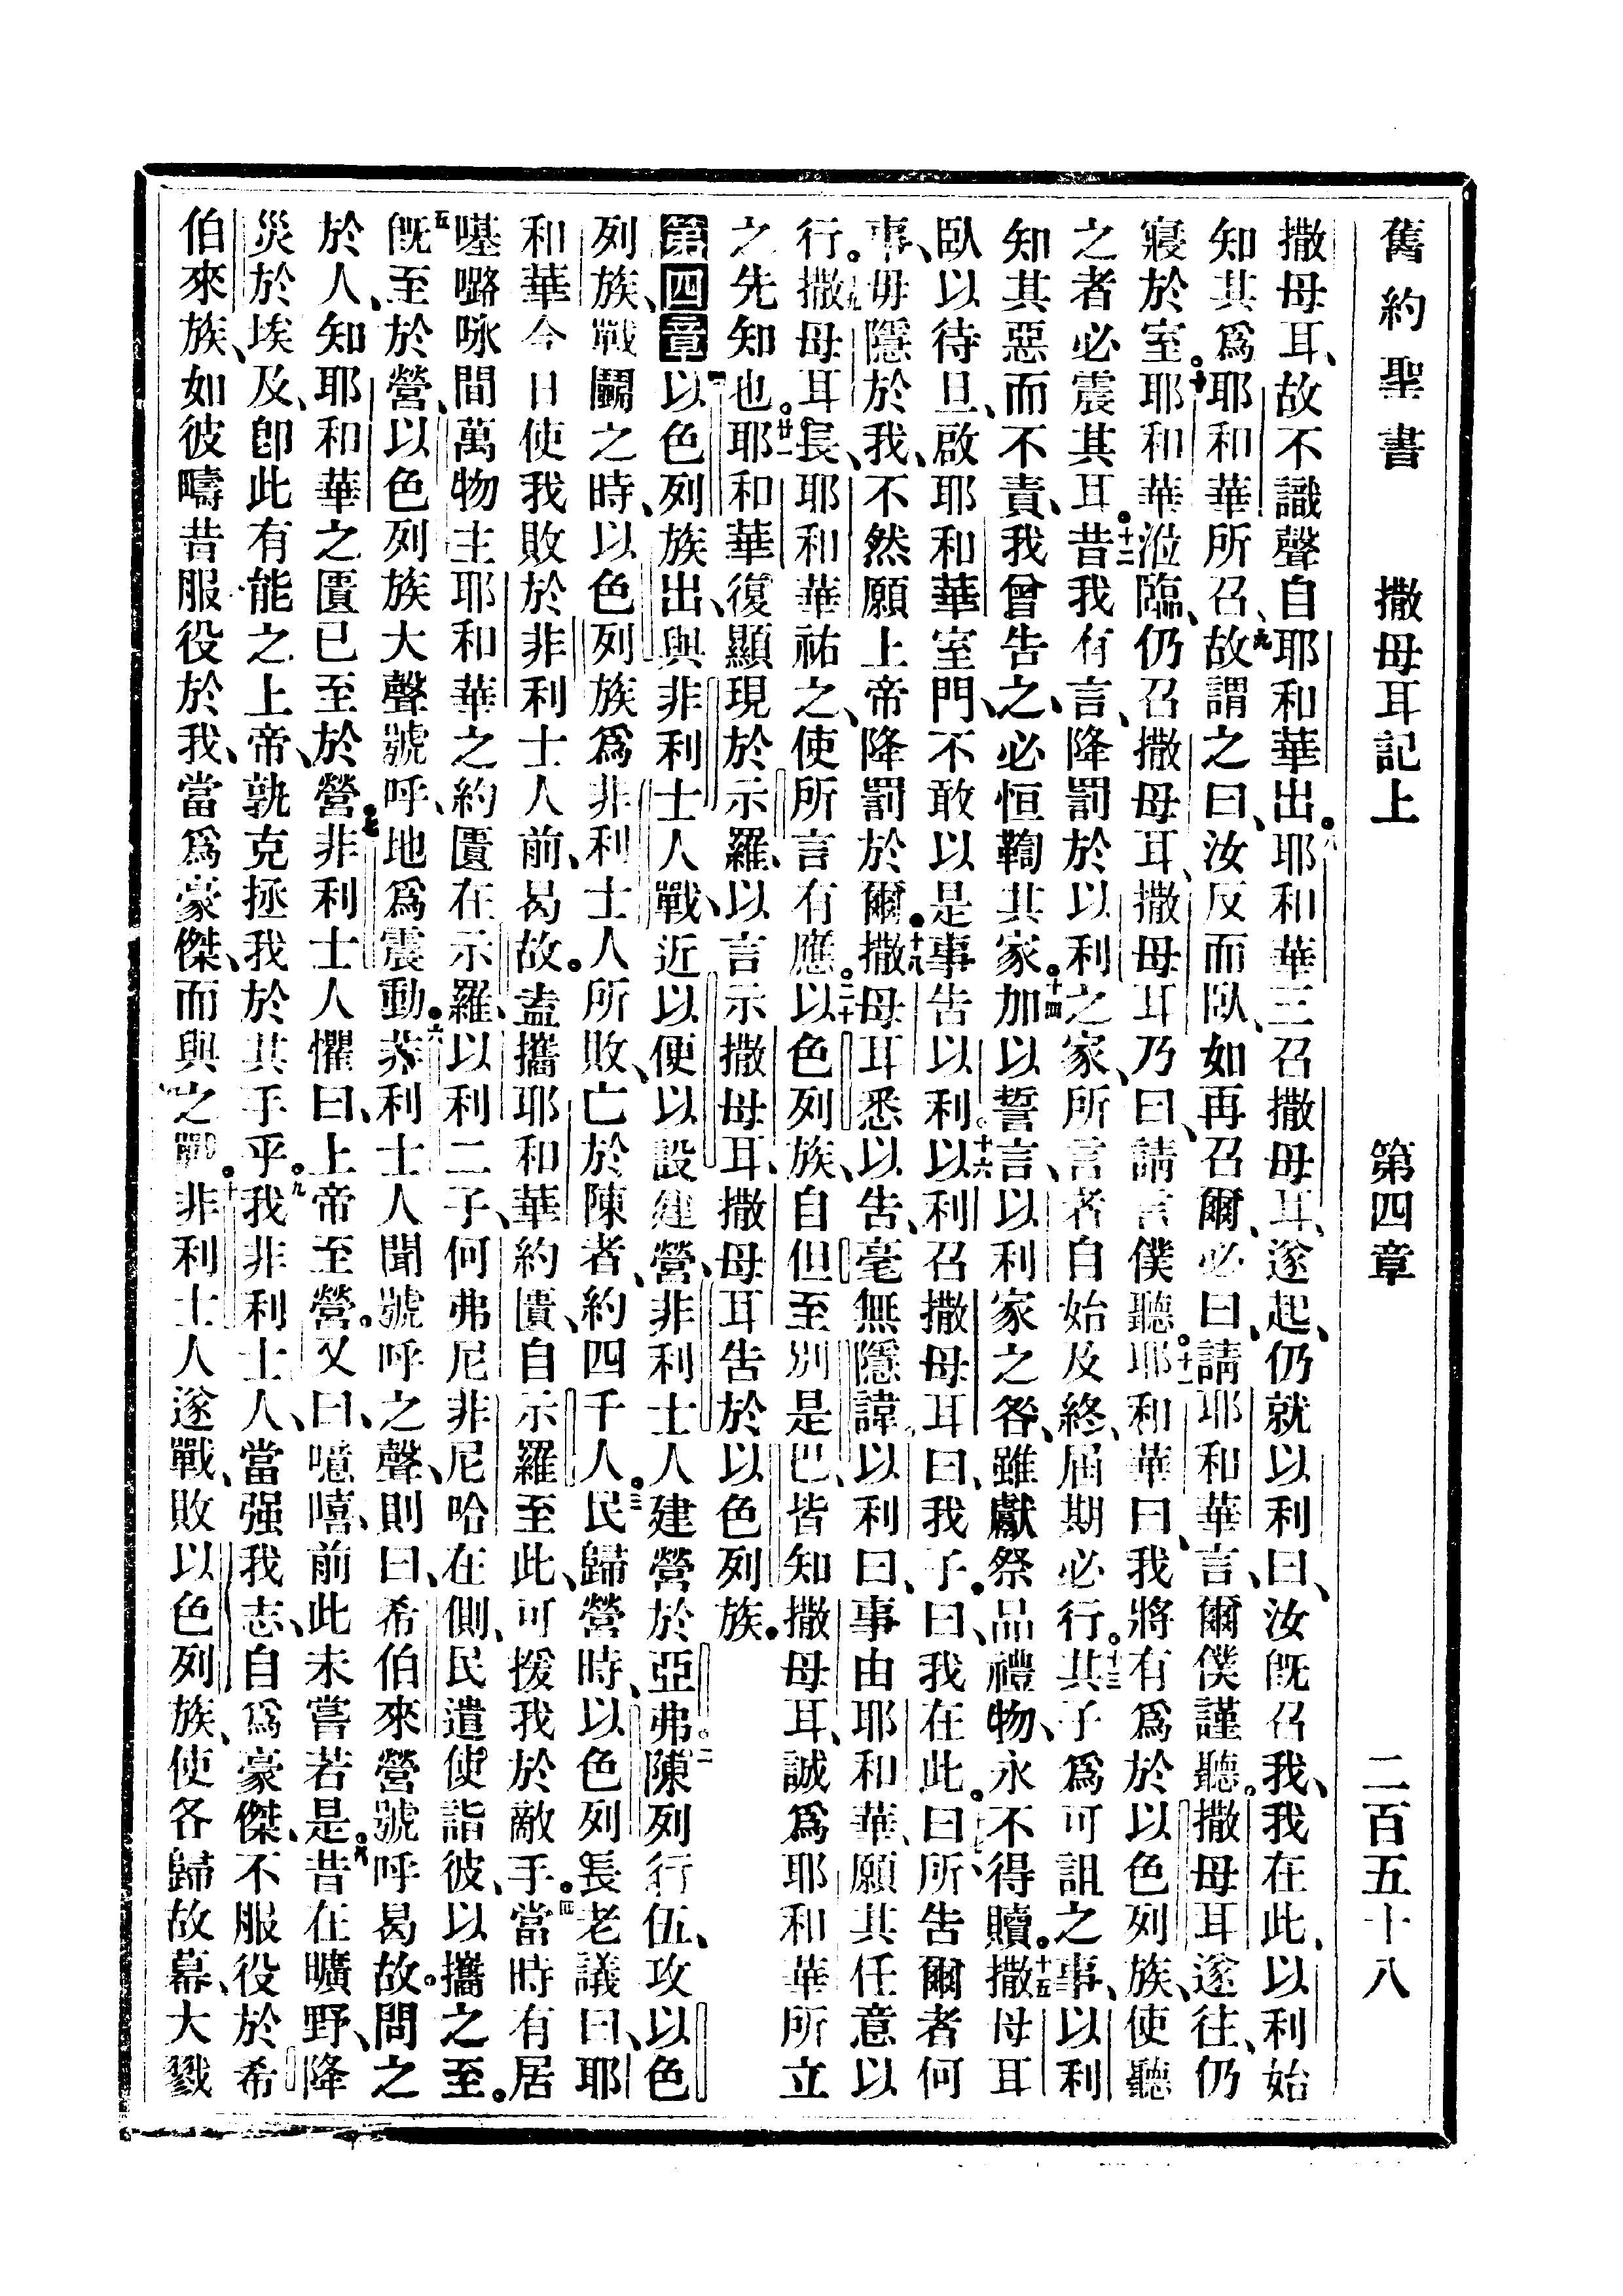 舊約聖書 撒母耳記上 第四章 二百五十八
撒母耳、故不識聲自耶和華出。八耶和華三召撒母耳、遂起、仍就以利曰、汝旣召我、我在此、以利始
知其爲耶和華所召、九故謂之曰、汝反而臥、如再召爾、必曰、請耶和華言、爾僕謹聽。撒母耳遂往、仍
寢於室。十耶和華涖臨、仍召撒母耳、撒母耳乃曰、請言僕聽。十一耶和華曰、我將有爲於以色列族、使聽
之者必震其耳。十二昔我有言、降罰於以利之家、所言者自始及終、屆期必行。十三其子爲可詛之事、以利
知其惡而不責、我曾告之、必恒鞫其家。十四加以誓言、以利家之咎、雖獻祭品禮物、永不得贖。十五撒母耳
臥以待旦、啟耶和華室門、不敢以是事告以利。十六以利召撒母耳曰、我子。曰、我在此。十七曰、所告爾者何
事、毋隱於我、不然願上帝降罰於爾。十八撒母耳悉以告、毫無隱諱、以利曰、事由耶和華、願其任意以
行。十九撒母耳長、耶和華祐之、使所言有應。二十以色列族、自但至別是巴、皆知撒母耳、誠爲耶和華所立
之先知也。廿一耶和華復顯現於示羅、以言示撒母耳、撒母耳告於以色列族。
第四章 一以色列族出、與非利士人戰、近以便以設建營、非利士人建營於亞弗。二陳列行伍、攻以色
列族、戰鬬之時、以色列族爲非利士人所敗、亡於陳者、約四千人。三民歸營時、以色列長老議曰、耶
和華今日使我敗於非利士人前、曷故。盍攜耶和華約匱自示羅至此、可援我於敵手。四當時有居
𠼻𡀔咏間萬物主耶和華之約匱在示羅、以利二子、何弗尼非尼哈在側、民遣使詣彼、以攜之至。
五旣至於營、以色列族大聲號呼、地爲震動。六非利士人聞號呼之聲、則曰、希伯來營號呼曷故。問之
於人、知耶和華之匱已至於營。七非利士人懼曰、上帝至營。又曰、噫嘻、前此未嘗若是。八昔在曠野、降
災於埃及、卽此有能之上帝、孰克拯我於其手乎。九我非利士人、當强我志、自爲豪傑、不服役於希
伯來族、如彼疇昔服役於我、當爲豪傑、而與之戰。十非利士人遂戰、敗以色列族、使各歸故幕、大戮